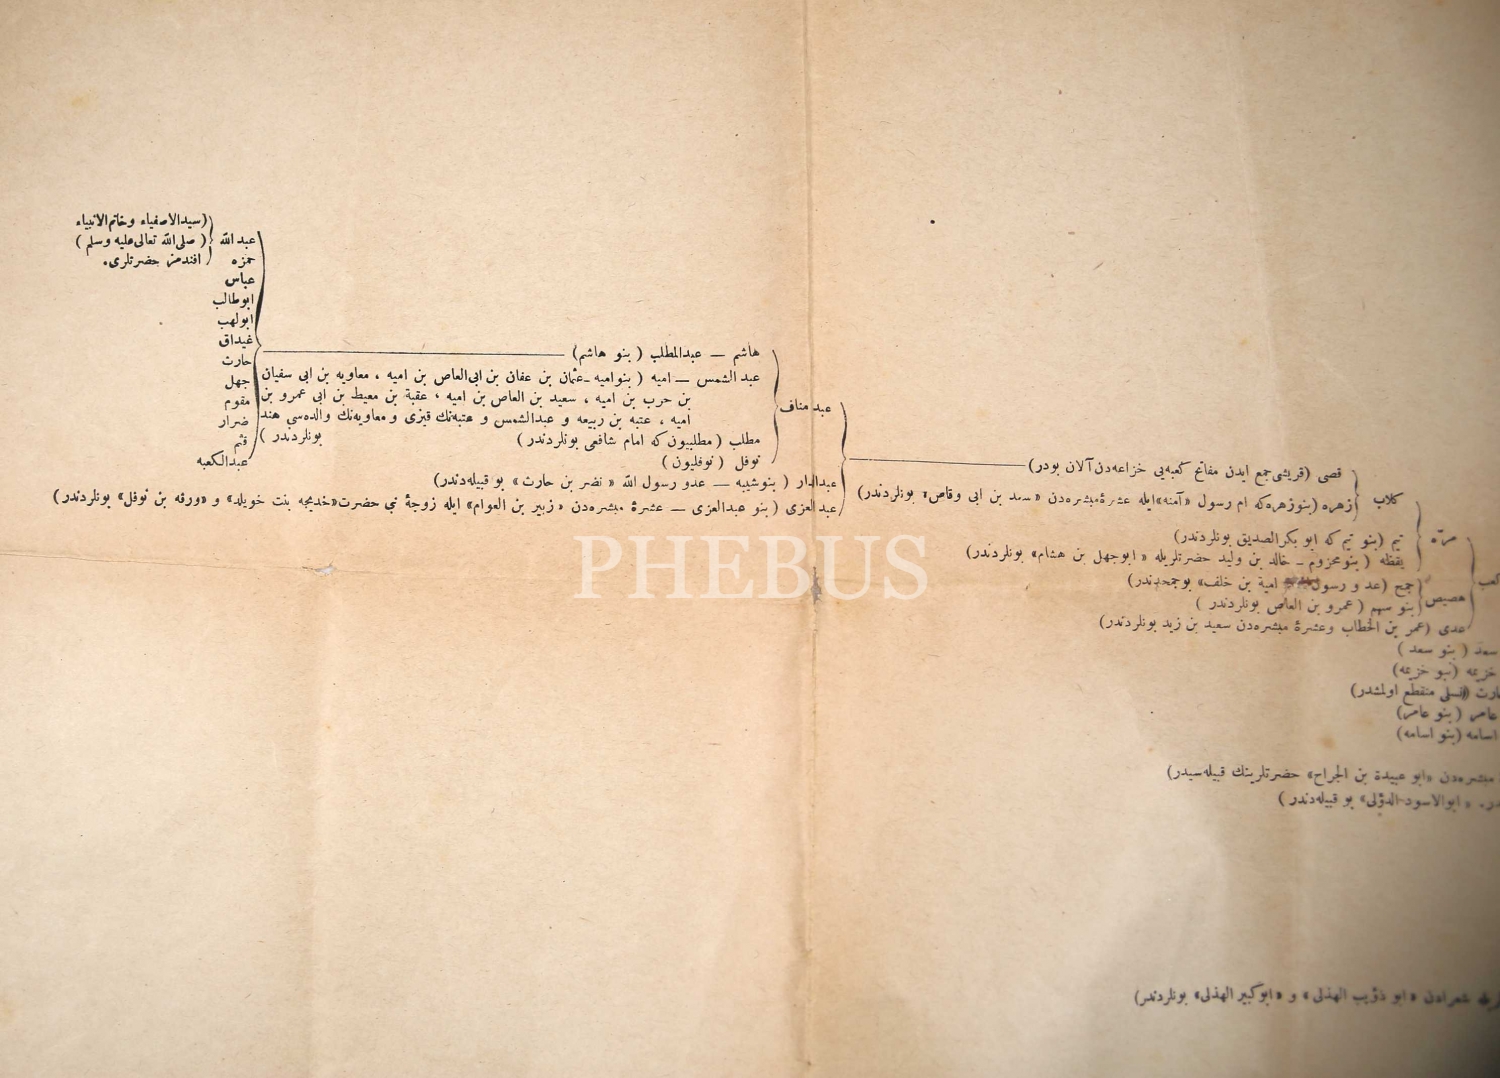 (سيدالاصفياء وخاتم الانبياء
عبد الله ( صلى الله تعالى عليه وسلم )
حمزه افندمز حضرتلرى.
عباس
ابوطالب
ابولهب
غيداق
حارث
جهل
مقوم
ضرار
قثم
عبدالكعبه
هاشم — عبدالمطلب ( بنو هاشم)
عبد الشمس — اميه ( بنواميه ـ عثمان بن عفان بن ابى العاص بن اميه ، معاويه بن ابى سفيان
بن حرب بن اميه ، سعيد بن العاص بن اميه ، عقبة بن معيط بن ابى عمرو بن
اميه ، عتبه بن ربيعه و عبدالشمس و عتبه‌نك قيزى و معاويه‌نك والده‌سى هند
بونلردندر )
مطلب ( مطلبيون كه امام شافعى بونلردندر )
نوفل ( نوفليون )
عبد مناف
عبدالدار ( بنوشيبه — عدو رسول الله « نضر بن حارث » بو قبيله‌دندر)
عبدالعزى ( بنو عبدالعزى — عشرۀ مبشره‌دن « زبير بن العوام» ايله زوجۀ نبى حضرت «خديجه بنت خويلد» و «ورقه بن نوفل» بونلردندر)
قصى (قريشى جمع ايدن مفاتح كعبه‌يى خزاعه‌دن آلان بودر)
زهره (بنوزهره كه ام رسول «آمنه» ايله عشرۀ مبشره‌دن «سعد بن ابى وقاص» بونلردندر)
كلاب
تيم (بنو تيم كه ابو بكر الصديق بونلردندر)
يقظه ( بنومخزوم ـ خالد بن وليد حضرتلريله « ابوجهل بن هشام» بونلردندر)
مره
جمح (عد و رسول امية بن خلف» بوجمحدندر)
بنو سهم ( عمرو بن العاص بونلردندر )
هصيص
كعب
عدى (عمر بن الخطاب وعشرۀ مبشره‌دن سعيد بن زيد بونلردندر)
سعد ( بنو سعد )
خزيمه (بنو خزيمه)
(نسلى منقطع اولمشدر)
عامر ( بنو عامر)
اسامه (بنو اسامه)
مبشره‌دن «ابو عبيدة بن الجراح» حضرتلرينك قبيله‌سيدر)
«ابوالاسود الدؤلى» بو قبيله‌دندر )
شعرادن «ابو ذؤيب الهذلى» و «ابوكبير الهذلى» بونلردندر)
PHEBUS